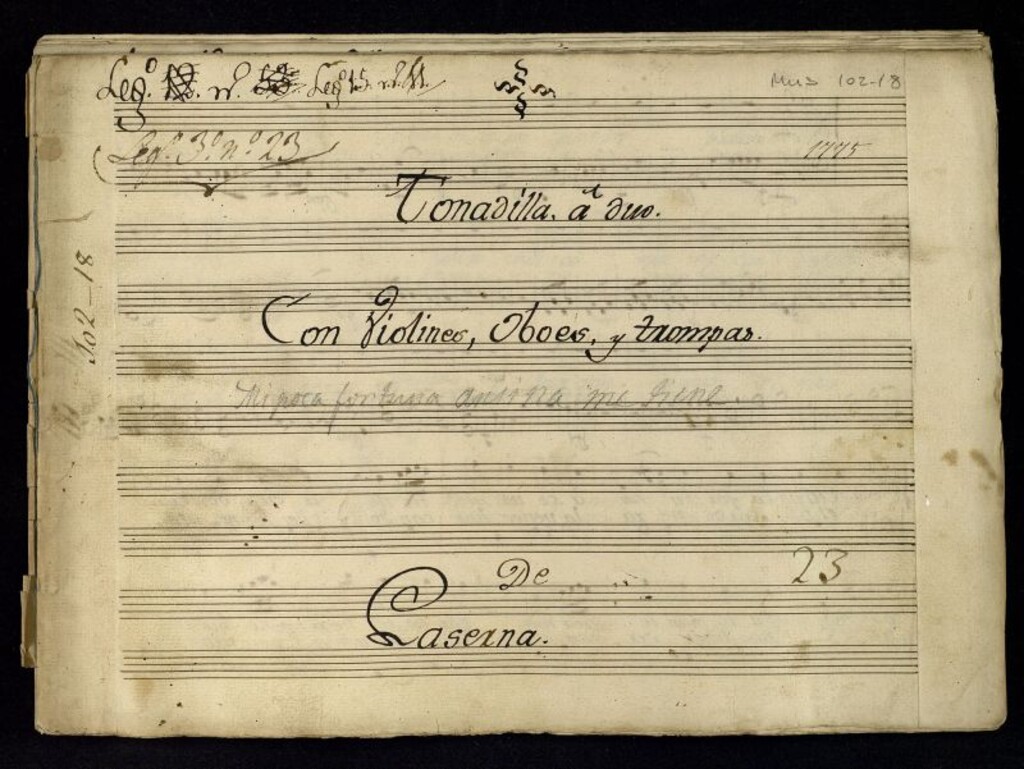 Leg.º n.º Legº 15. n.º
Mus 102-18
Leg.º 3.º n.º 23
1775
Tonadilla. á duo.
102-18
Con Violines, Oboes, y trompas.
Mi poca fortuna ansina me tiene
De
23
Laserna.